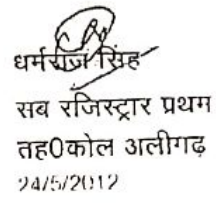 धर्मराज सिंह
सब रजिस्ट्रार प्रथम
तह0कोल अलीगढ़
24/5/2012